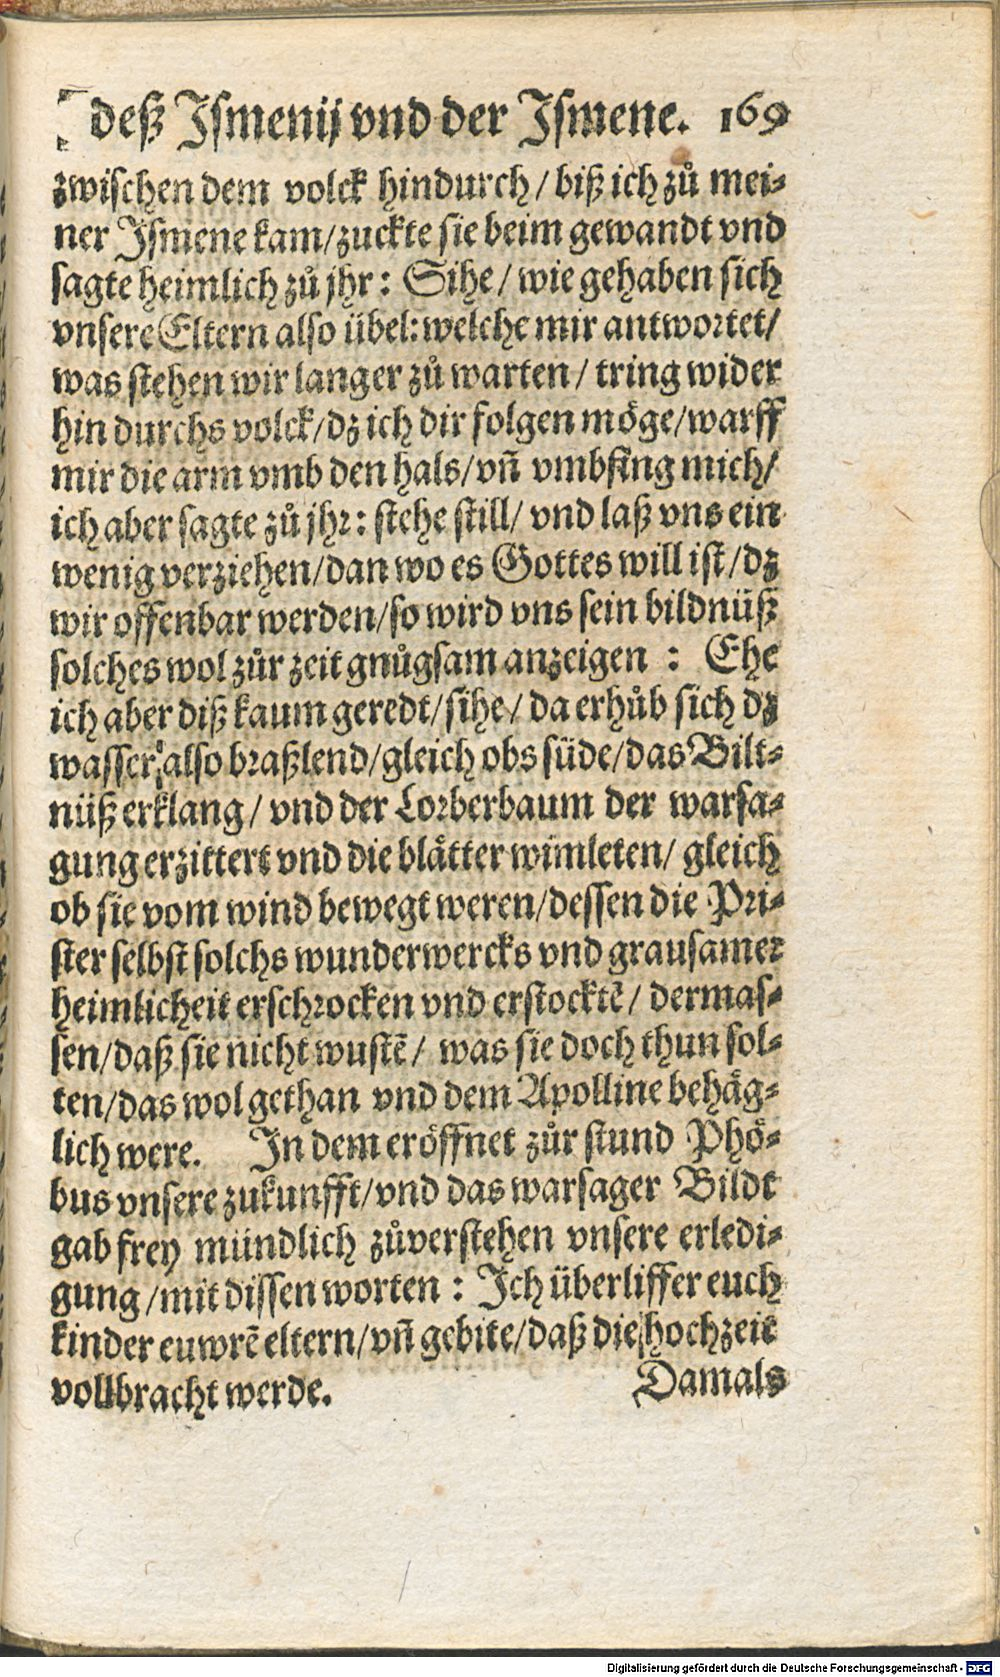 deß Ismenij vnd der Ismene. 169
zwischen dem volck hindurch / biß ich zů mei-
ner Ismene kam/zuckte sie beim gewandt vnd
sagte heimlich zů jhr: Sihe / wie gehaben sich
vnsere Eltern also übel: welche mir antwortet/
was stehen wir langer zů warten / tring wider
hin durchs volck/dz ich dir folgen möge/warff
mir die arm vmb den hals/vñ vmbfing mich/
ich aber sagte zů jhr: stehe still/ vnd laß vns ein
wenig verziehen/dan wo es Gottes will ist/dz
wir offenbar werden/so wird vns sein bildnüß
solches wol zůr zeit gnůgsam anzeigen : Ehe
ich aber diß kaum geredt/sihe / da erhůb sich dz
wasser also braßlend/gleich obs süde/das Bilt-
nüß erklang / vnd der Lorberbaum der warsa-
gung erzittert vnd die blätter wimleten/ gleich
ob sie vom wind bewegt weren/dessen die Pri-
ster selbst solchs wunderwercks vnd grausamer
heimlicheit erschrocken vnd erstocktē/ dermas-
sen/daß sie nicht wustē/ was sie doch thun sol-
ten/das wol gethan vnd dem Apolline behäg-
lich were. In dem eröffnet zůr stund Phö-
bus vnsere zukunfft/vnd das warsager Bildt
gab frey mündlich zůverstehen vnsere erledi-
gung /mit dissen worten : Ich überliffer euch
kinder euwrē eltern/vñ gebite/daß die hochzeit
vollbracht werde. Damals
Digitalisierung gefördert durch die Deutsche Forschungsgemeinschaft - DFG